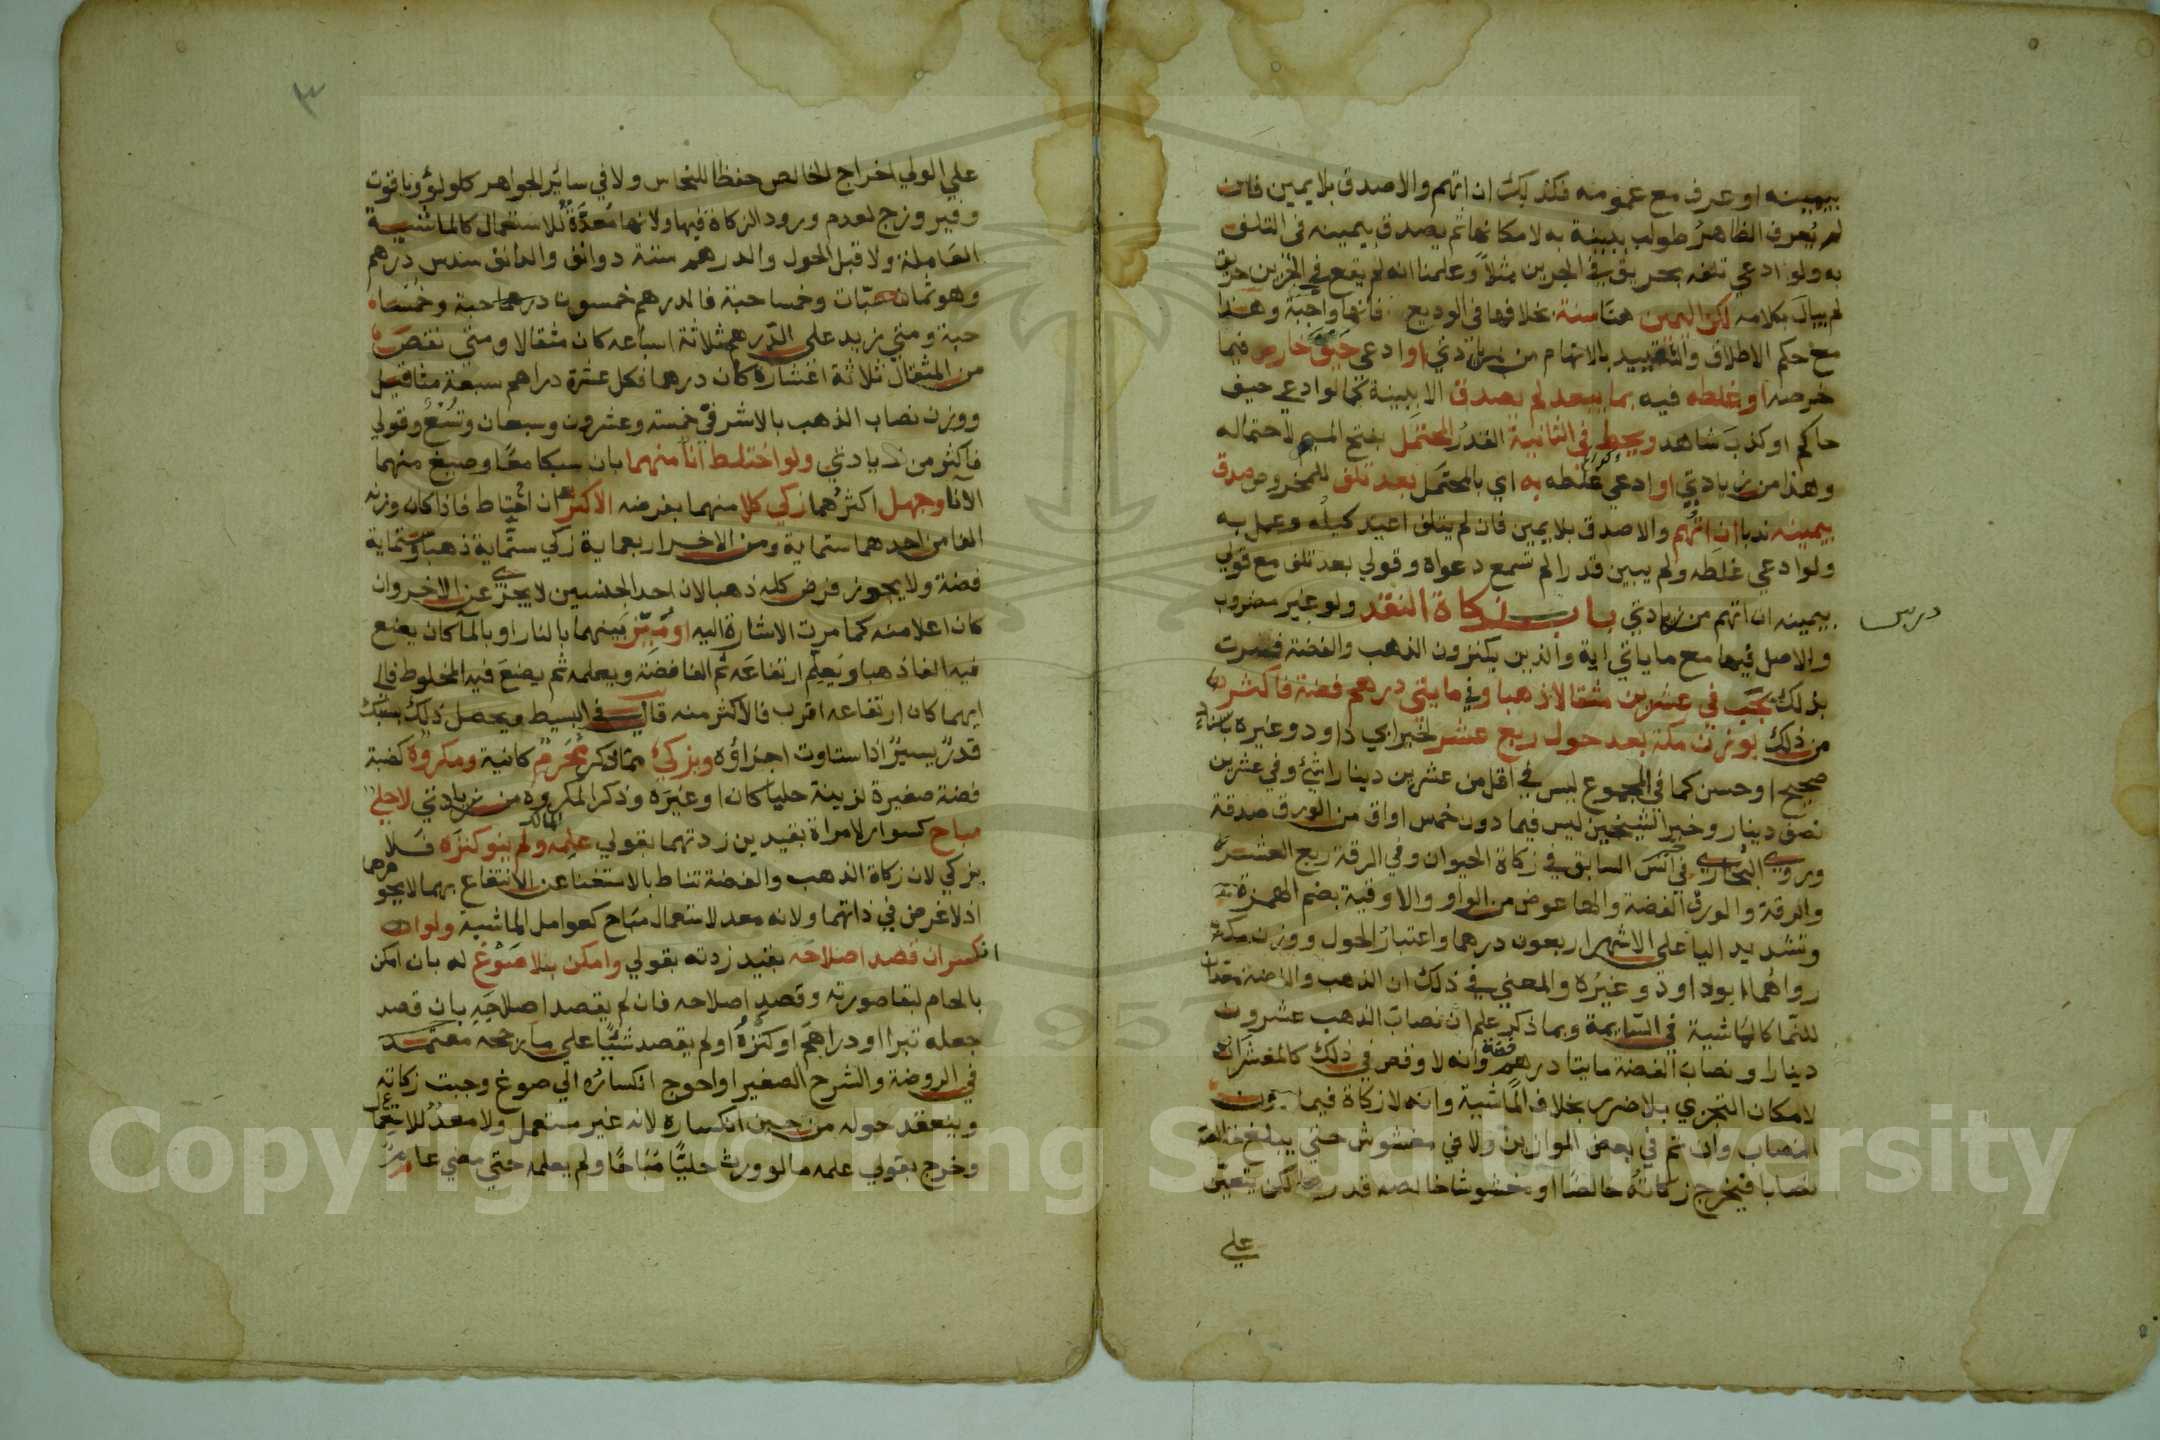 بيمينه او عرف مع عمومه فكذلك ان اتهم والاصدق بلا يمين فان
لم يعرف الظاهر طولب ببينة به لامكانها ثم يصدق بيمينه في التلف
به ولو ادعي تلفه بحريق في الجرين مثلا وعلمنا انه لم يقع في الجرين حريق
لم يبال بكلامه لكن اليمين هنا سنة بخلافها في الوديع فانها واجبة وهذا
مع حكم الاطلاق والتقييد بالاتهام من زيادتي او ادعي حيف خارص فيما
خرصه او غلطه فيه بما يبعد لم يصدق الا ببينة كما لو ادعي حيف
حاكم او كذب شاهد ويحط في الثانية القدر المحتمل بفتح الميم لاحتماله
وهذا من زيادتي او ادعي غلطه به اي بالمحتمل بعد تلف للمخروص صدق
بيمينه ندبا ان اتهم والاصدق بلا يمين فان لم يتلف اعيد كيله وعمل به
ولو ادعي غلطه ولم يبين قدرا لم تسمع دعواه وقولي بعد تلف مع قولي
بيمينه ان اتهم من زيادتي باب زكاة النقد ولو غير مضروب
درس
والاصل فيها مع ما ياتي اية والذين يكنزون الذهب والفضة فسرت
بذلك يجب في عشرين مثقالا ذهبا وفي مايتي درهم فضة فاكثر
من ذلك بوزن مكة بعد حول ربع عشر لخبر ابي داود وغيره باسناد
صحيح او حسن كما في المجموع ليس في اقل من عشرين دينارا شي وفي عشرين
نصف دينار وخبر الشيخين ليس فيما دون خمس اواق من الورق صدقة
وروي البخاري في خبر انس السابق في زكاة الحيوان وفي الرقة ربع العشر
والرقة والورق الفضة والها عوض من الواو والاوقية بضم الهمزة
وتشديد اليا علي الاشهر اربعون درهما واعتبار الحول ووزن مكة
رواهما ابو داود وغيره والمعني في ذلك ان الذهب والفضة معدان
للنما كالماشية في السايمة وبما ذكر علم ان نصاب الذهب عشرون
دينارا ونصاب الفضة مايتا درهم فضة وانه لا وقص في ذلك كالمعشرات
لامكان التجزي بلا ضرر بخلاف الماشية وانه لا زكاة فيما دون
النصاب وان تم في بعض الموازين ولا في مغشوش حتي يبلغ خالصه
نصابا فيخرج زكاته خالصا او مغشوشا خالصه قدرها لكن يتعين
علي
علي الولي اخراج الخالص حفظا للنحاس ولا في ساير الجواهر كلولو وياقوت
وفيروزج لعدم ورود الزكاة فيها ولانها معدة للاستعمال كالماشية
العاملة ولا قبل الحول والدرهم ستة دوانق والدانق سدس درهم
وهو ثمان حبات وخمسا حبة فالدرهم خمسون حبة وخمسا
حبة ومتي زيد علي الدرهم ثلاثة اسباعه كان مثقالا ومتي نقص
من المثقال ثلاثة اعشاره كان درهما فكل عشرة دراهم سبعة مثاقيل
ووزن نصاب الذهب بالاشرفي خمسة وعشرون وسبعان وتسع وقولي
فاكثر من زيادتي ولو اختلط انا منهما بان سبكا معا وصيغ منهما
الانا وجهل اكثرهما زكي كلا منهما بفرضه الاكثر ان احتاط فاذا كان وزنه
الفا من احدهما ستماية ومن الاخر اربعماية زكي ستماية ذهبا وستماية
فضة ولا يجوز فرض كله ذهبا لان احد الجنسين لا يجزي عن الاخر وان
كان اعلا منه كما مرت الاشارة اليه او ميز بينهما بالنار او بالما كان يضع
فيه الفا ذهبا ويعلم ارتفاعه ثم الفا فضة ويعلمه ثم يضع فيه المخلوط فالي
ايهما كان ارتفاعه اقرب فالاكثر منه قال في البسيط ويحصل ذلك بسبك
قدر يسير اذا استاوت اجزاؤه ويزكي مما ذكر محرم كانية ومكروه كضبة
فضة صغيرة لزينة حليا كان او غيره وذكر المكروه من زيادتي لا حلي
مباح كسوار لامراة بقيدين زدتهما بقولي علمه المالك ولم ينو كنزه فلا
يزكي لان زكاة الذهب والفضة تناط بالاستغنا عن الانتفاع بهما لا بجوهرهما
اذ لا غرض في ذاتهما ولانه معد لاستعمال مباح كعوامل الماشية ولو ان
انكسر ان قصد اصلاحه بقيد زدته بقولي وامكن بلا صوغ له بان امكن
بالحام لبقا صورته وقصد اصلاحه فان لم يقصد اصلاحه بان قصد
جعله تبرا او دراهم او كنزه او لم يقصد شيا علي ما رجحه معتمد
في الروضة والشرح الصغير او احوج انكساره الي صوغ وجبت زكاته
وينعقد حوله من حين انكساره لانه غير مستعمل ولا معد للاستعمال
وخرج بقولي علمه ما لو ورث حليا مباحا ولم يعلمه حتي مضي عام
Copyright © King Saud University
1957